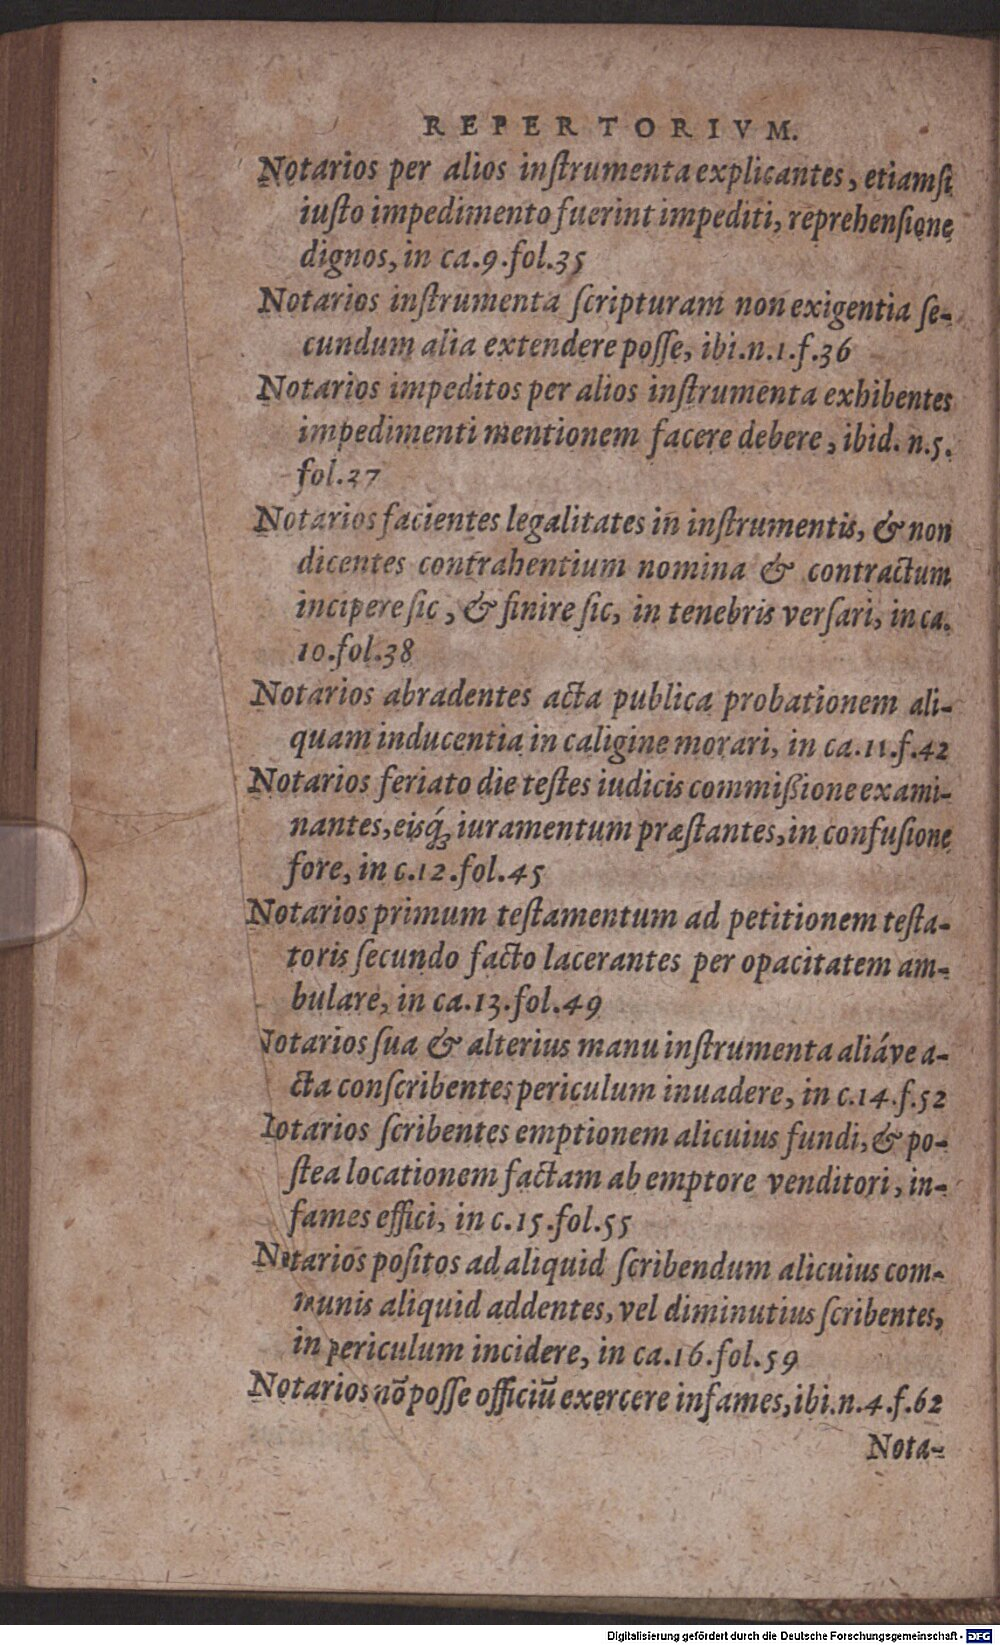 REPERTORIVM.
Notarios per alios inſtrumenta explicantes, etiamſi
iuſto impedimento fuerint impediti, reprehenſione
dignos, in ca.9.fol.35
Notarios inſtrumenta ſcripturam non exigentia ſe-
cundum alia extendere poſſe, ibi.n.1.f.36
Notarios impeditos per alios inſtrumenta exhibentes
impedimenti mentionem facere debere, ibid. n.5.
fol.37
Notarios facientes legalitates in inſtrumentis, & non
dicentes contrahentium nomina & contractum
incipere ſic, & finire ſic, in tenebris verſari, in ca.
10.fol.38
Notarios abradentes acta publica probationem ali-
quam inducentia in caligine morari, in ca.11.f.42
Notarios feriato die teſtes iudicis commißione exami-
nantes, eisq́ꝫ iuramentum præſtantes, in confuſione
fore, in c.12.fol.45
Notarios primum teſtamentum ad petitionem teſta-
toris ſecundo facto lacerantes per opacitatem am-
bulare, in ca.13.fol.49
Notarios ſua & alterius manu inſtrumenta aliáve a-
cta conſcribentes periculum inuadere, in c.14.f.52
Notarios ſcribentes emptionem alicuius fundi, & po-
ſtea locationem factam ab emptore venditori, in-
fames effici, in c.15.fol.55
Notarios poſitos ad aliquid ſcribendum alicuius com-
munis aliquid addentes, vel diminutius ſcribentes,
in periculum incidere, in ca.16.fol.59
Notarios nõ poſſe officiũ exercere infames, ibi.n.4.f.62
Nota-
Digitalisierung gefördert durch die Deutsche Forschungsgemeinschaft - DFG